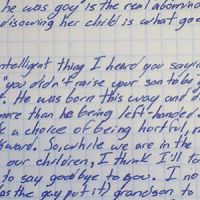 he was gay" is the real abomina
disowing her child is what goe
ntelligent thing I heard you sayin
"you didn't raise your son to be g
. He was born this way and d
more than he being left-handed.
a choice of being hurtful,
ward. So, while we are in the
our children, I think I'll to
to say goodbye to you. I no
as the guy put it) grandson to